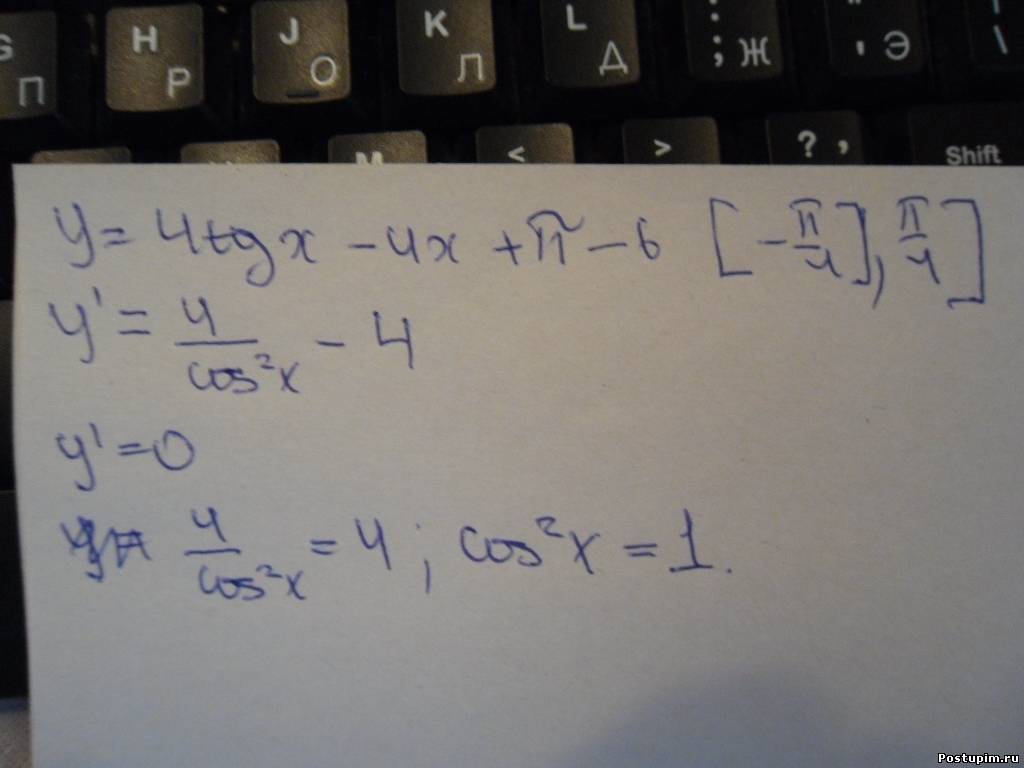 G H J K L : ; " ' \
П Р О Л Д Ж Э
M < > ? , Shift
y = 4tgx - 4x + π - 6 [-π/4], π/4]
y' = 4/cos²x - 4
y' = 0
4/cos²x = 4 ; cos²x = 1.
Postupim.ru